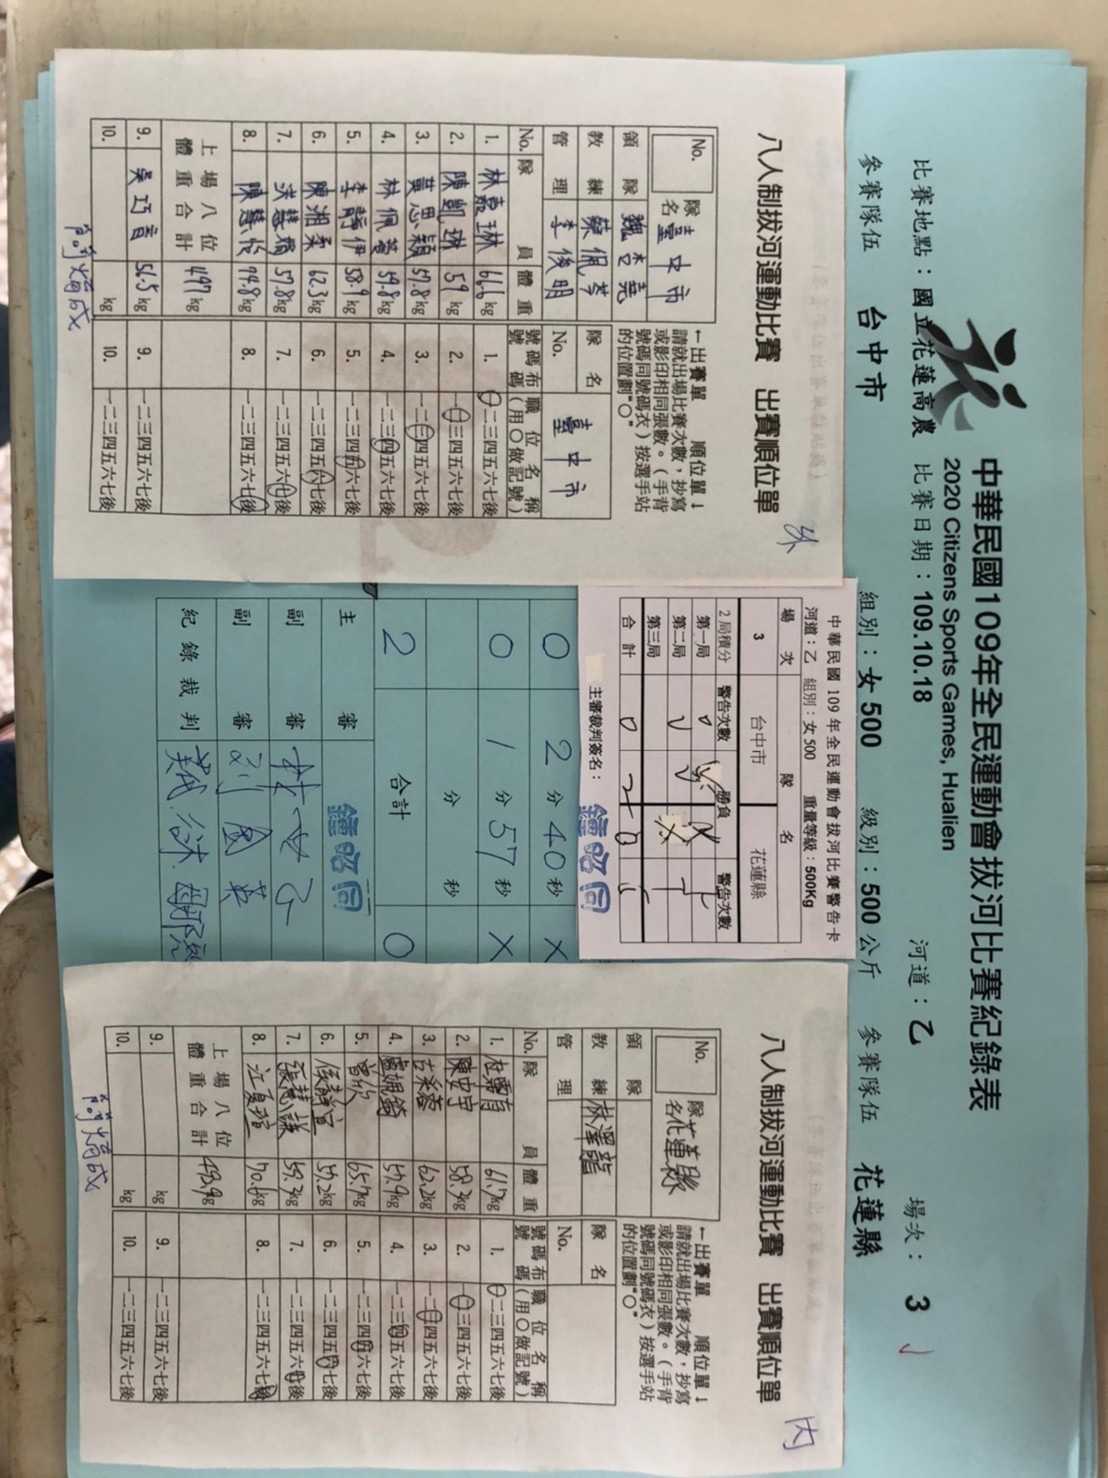 中華民國109年全民運動會拔河比賽紀錄表
2020 Citizens Sports Games, Hualien
比賽地點：國立花蓮高農 比賽日期：109.10.18 河道：乙 場次：3
參賽隊伍 台中市 組別：女500 級別：500公斤 參賽隊伍 花蓮縣
八人制拔河運動比賽 出賽順位單
外
No.
隊名 臺中市
領隊
教練 蔡佩芩
管理 李俊明
←出賽單 順位單↓
請就出場比賽次數，抄寫
或影印相同張數。（手背
號碼同號碼衣）按選手站
的位置劃"○"
隊名 臺中市
No.
No. 隊員 體重
號碼布號碼 職位名稱（用○做記號）
1. 林嘉琳 61.6kg 1. 一二三四五六七後
2. 陳凱琳 59kg 2. 一二三四五六七後
3. 黃思穎 57.8kg 3. 一二三四五六七後
4. 林佩萱 59.8kg 4. 一二三四五六七後
5. 李靜伊 58.9kg 5. 一二三四五六七後
6. 陳湘柔 62.3kg 6. 一二三四五六七後
7. 57.8kg 7. 一二三四五六七後
8. 陳慧 74.8kg 8. 一二三四五六七後
上場八位體重合計 kg
9. 吳巧音 56.5kg 9. 一二三四五六七後
10. kg 10. 一二三四五六七後
中華民國109年全民運動會拔河比賽警告卡
河道：乙 組別：女500 重量等級：500Kg
場次 隊名
3 台中市 花蓮縣
2局積分 警告次數 勝負 警告次數
第一局
第二局
第三局
合計 0 2 0
主審裁判簽名： 鍾昭同
0 2分40秒 X
0 1分57秒 X
分 秒
2 合計 0
主審 鍾昭同
副審
副審 劉國英
紀錄裁判
八人制拔河運動比賽 出賽順位單
內
No.
隊名 花蓮縣
領隊
教練 林澤龍
管理
←出賽單 順位單↓
請就出場比賽次數，抄寫
或影印相同張數。（手背
號碼同號碼衣）按選手站
的位置劃"○"
隊名
No.
No. 隊員 體重
號碼布號碼 職位名稱（用○做記號）
1. 61.7kg 1. 一二三四五六七後
2. 陳安宇 58.3kg 2. 一二三四五六七後
3. 62.2kg 3. 一二三四五六七後
4. 57.9kg 4. 一二三四五六七後
5. 曾欣 65.7kg 5. 一二三四五六七後
6. 侯靜宜 57.2kg 6. 一二三四五六七後
7. 59.3kg 7. 一二三四五六七後
8. 江夏瑄 70.6kg 8. 一二三四五六七後
上場八位體重合計
9. kg 9. 一二三四五六七後
10. kg 10. 一二三四五六七後